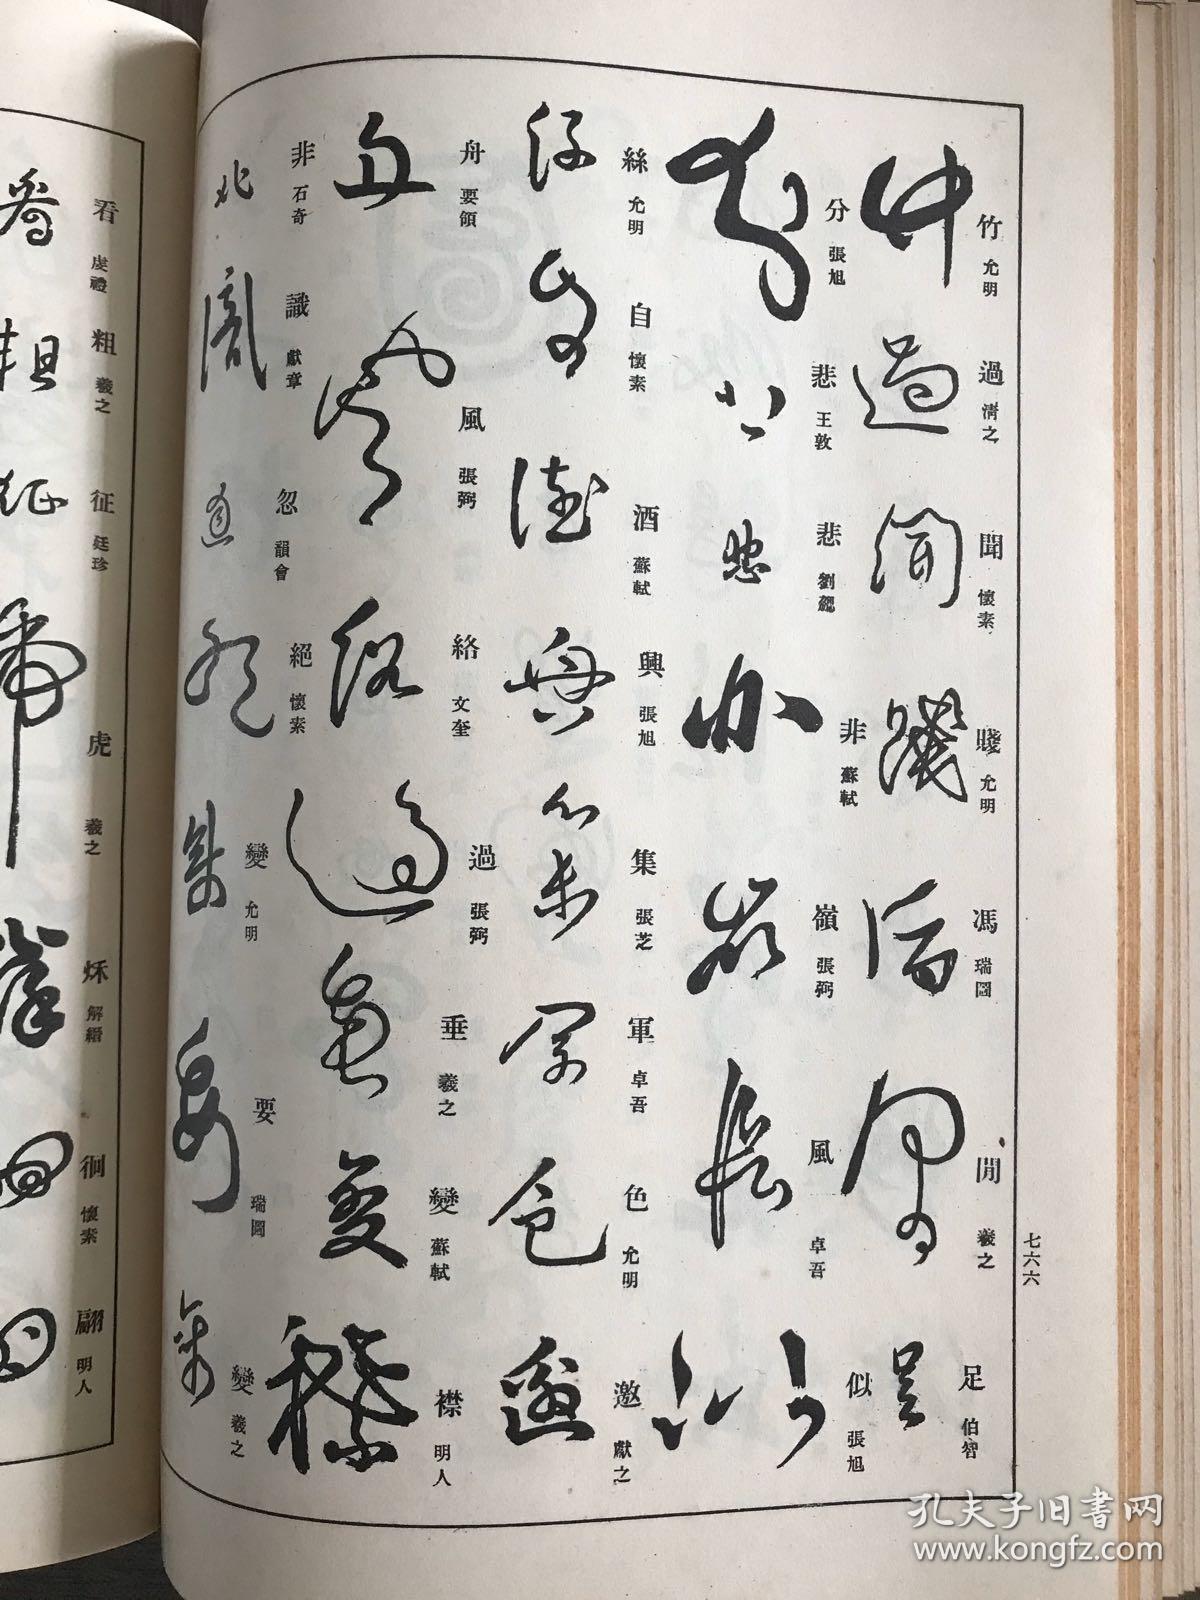 竹 允明 過 清之 聞 懷素 賤 允明 馮 瑞圖 閒 羲之 足 伯智
分 張旭 悲 王敦 悲 劉 非 蘇軾 嶺 張弼 風 卓吾 似 張旭
絲 允明 自 懷素 酒 蘇軾 興 張旭 集 張芝 軍 卓吾 色 允明 邀 獻之
舟 要領 風 張弼 絡 文奎 過 張弼 垂 羲之 變 蘇軾 襟 明人
非 石奇 識 獻章 忽 韻會 絕 懷素 變 允明 要 瑞圖 變 羲之
七六六
看 虔禮 粗 羲之 征 廷珍 虎 羲之 秌 解縉 徊 懷素 翩 明人
孔夫子旧书网
www.kongfz.com